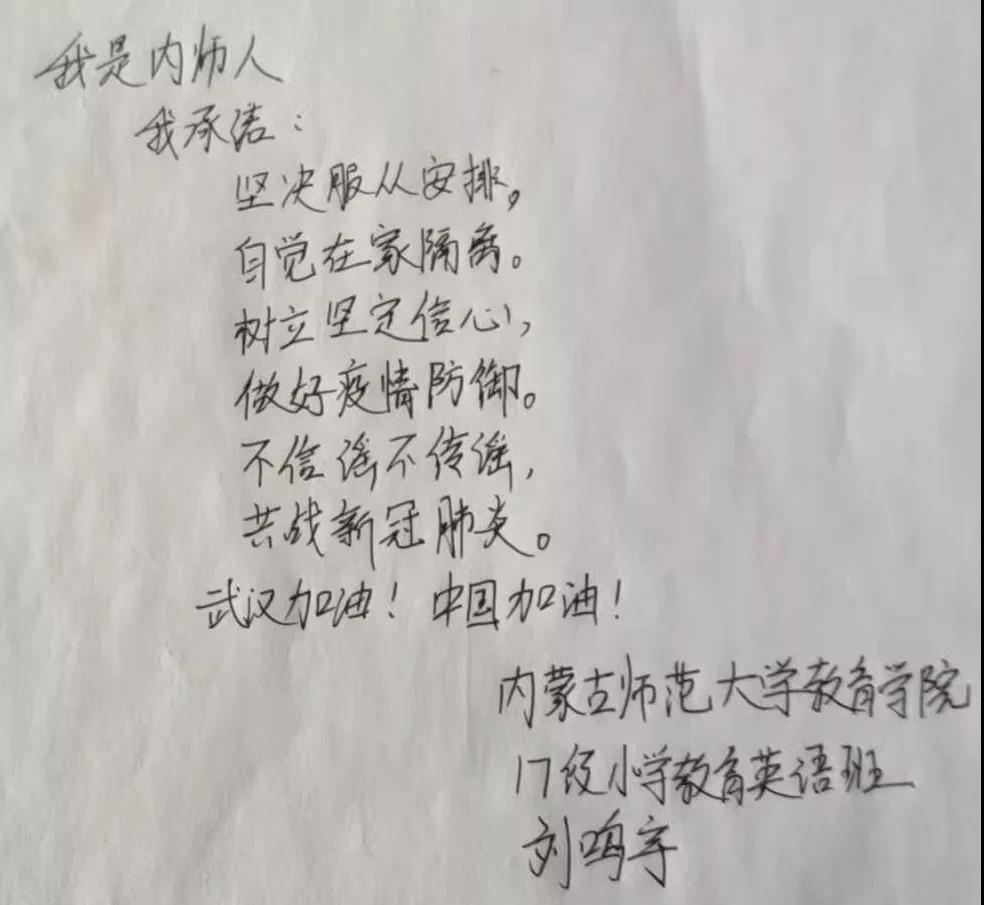 我是内师人
我承诺：
坚决服从安排。
自觉在家隔离。
树立坚定信心，
做好疫情防御。
不信谣不传谣，
共战新冠肺炎。
武汉加油！中国加油！
内蒙古师范大学教育学院
17级小学教育英语班
刘鸣宇